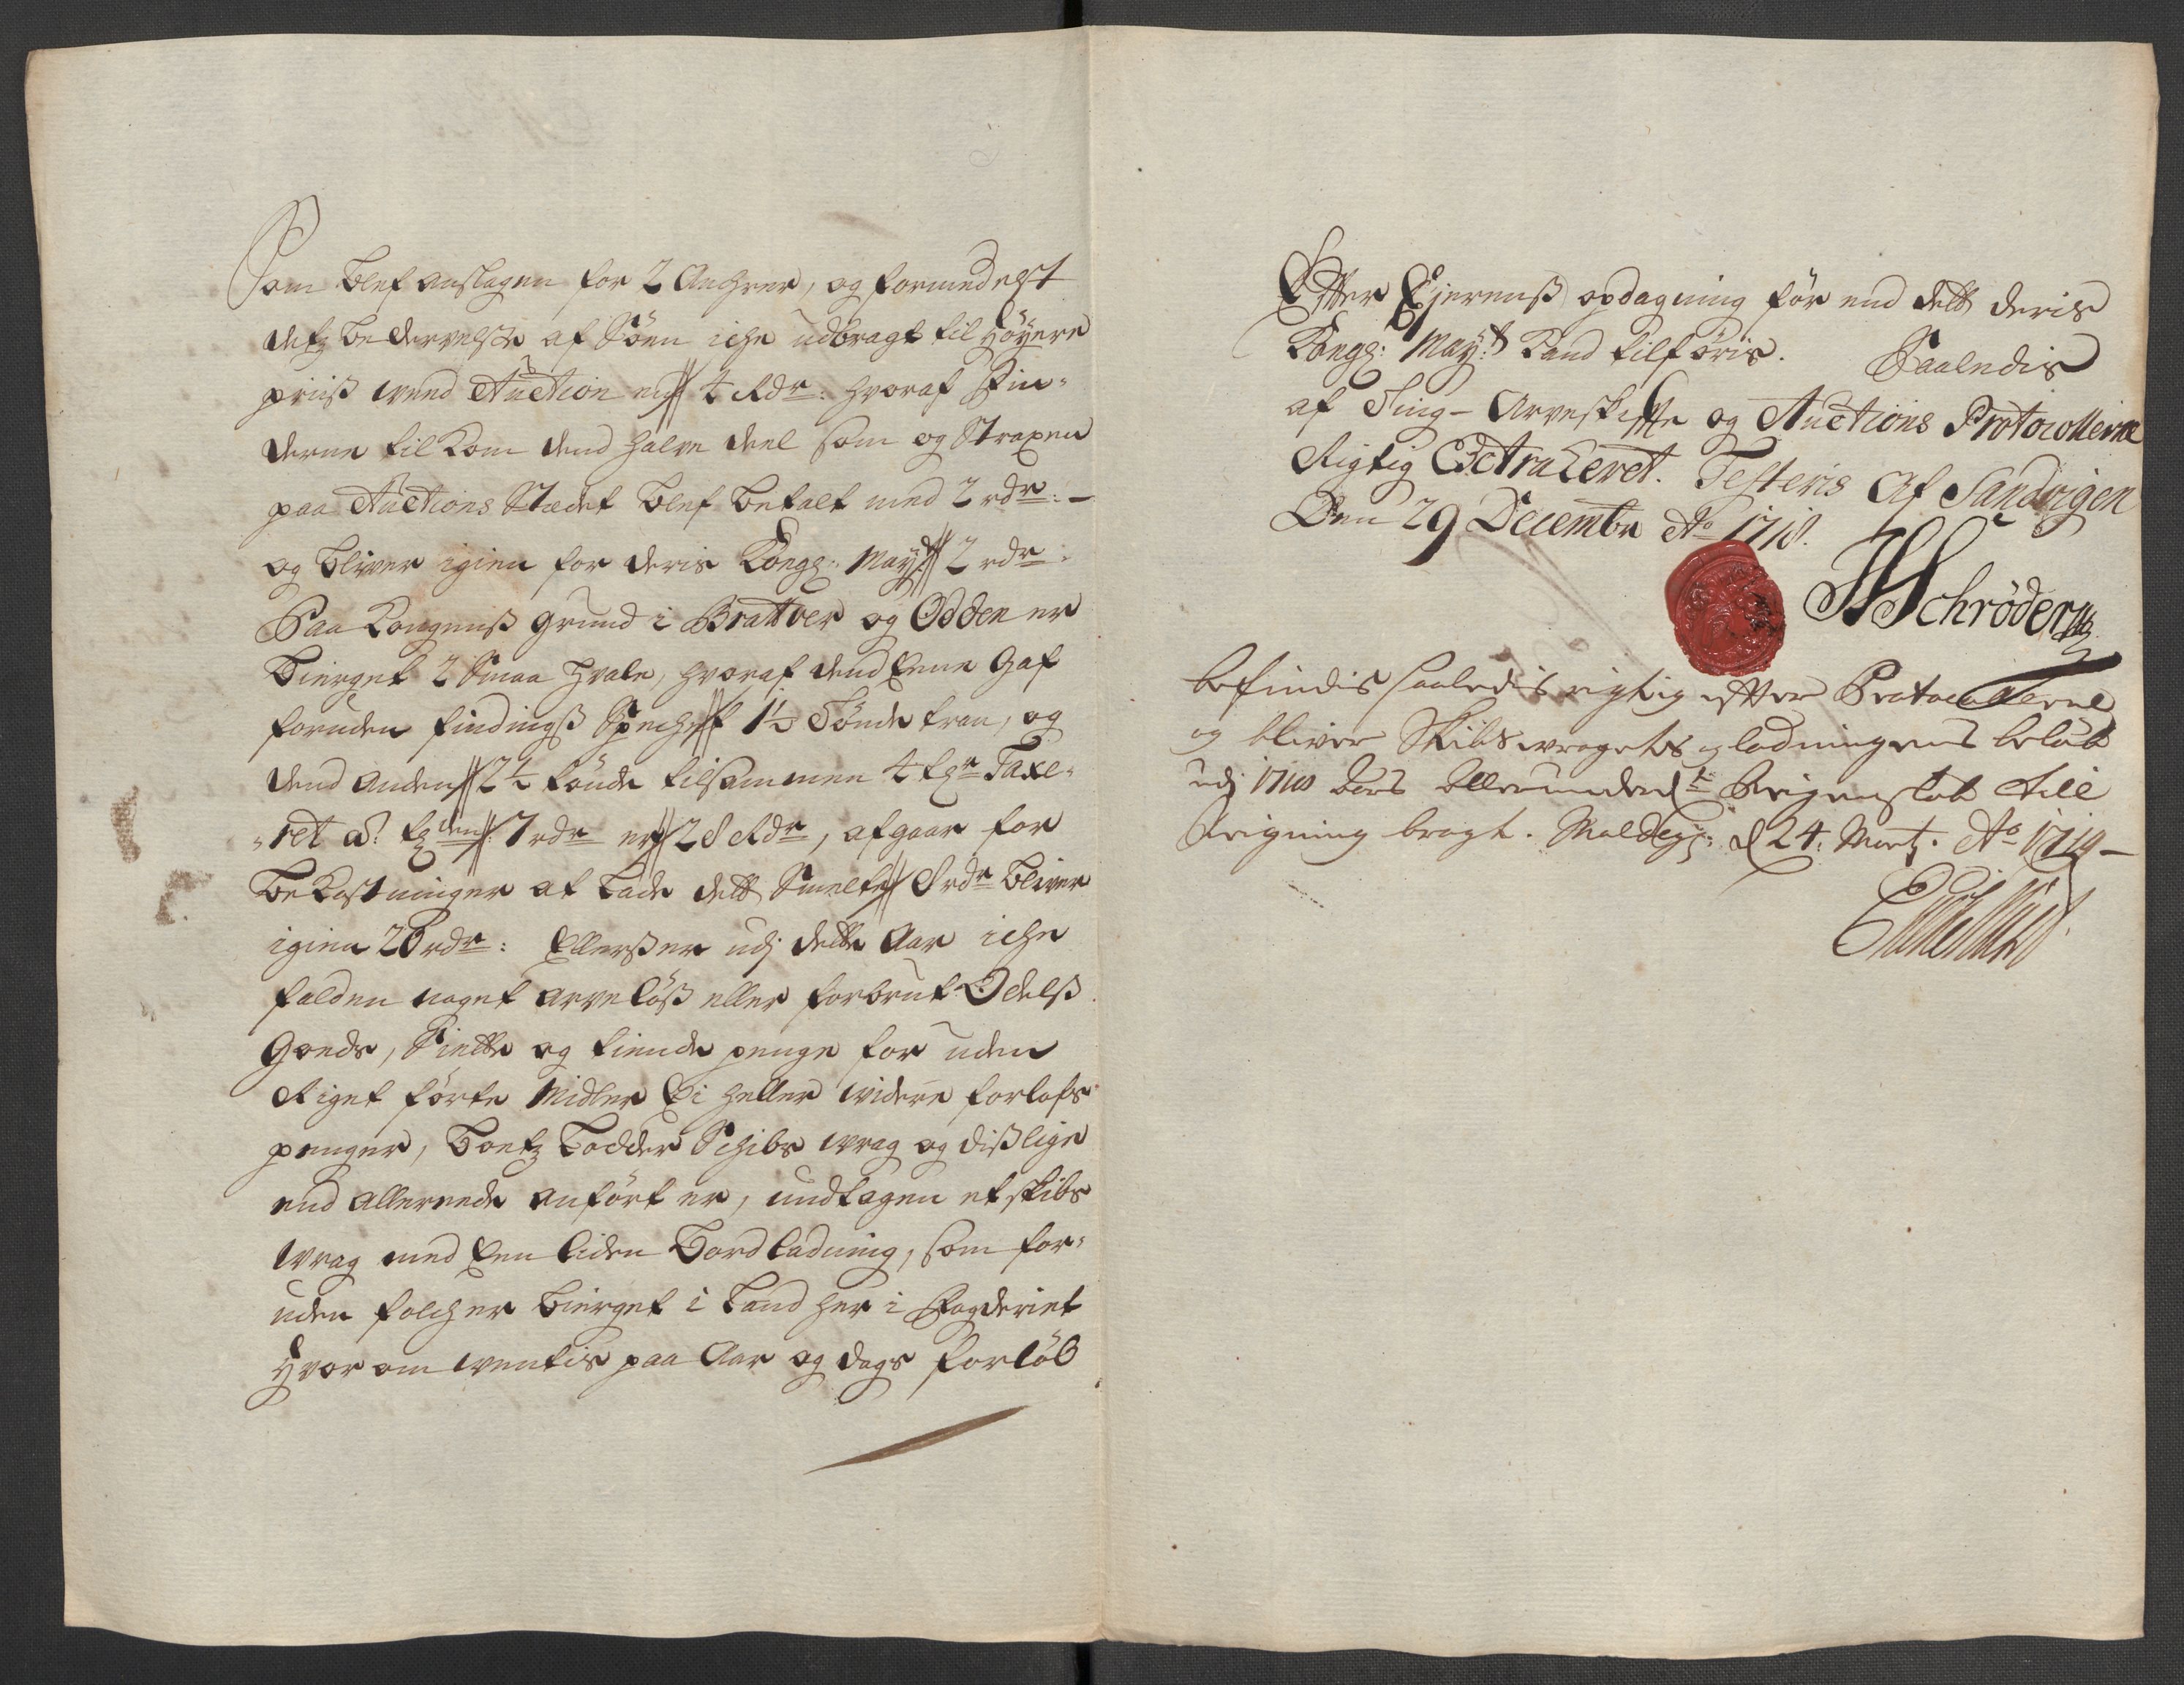 Som blef anslagen for 2 Anchrer, og formedelst
dets bedervelse af Söen iche udbragt til höyere
priis wed Auction end 4 Rdr: hvoraf Fin-
derne tilkom dend halve deel som og Straxen
paa Auctions Stædet blef betalt med 2 rdr: -
og bliver igien for deris Kongl: Mayt: 2 rdr:
Paa Kongens grund i Brattver og Odden er
bierget 2 Smaa hvale, hvoraf dend Eene gaf
foruden findings Spech 1½ Tönde tran, og
dend anden 2½ tönde tilsammen 4 tdr Taxe-
-ret a. td: 7 rdr er 28 Rdr, afgaar for
bekostninger at lade dett Smelte 8 rdr bliver
igien 20 rdr: Ellers er udj dette Aar iche
falden noget arvelöß eller forbrut Odelß
Goeds, Siette og tiende penge for uden
Riget förte Midler Ei heller widere forlofs
penger, boets lodder Schibs wrag og dißlige
end allereede anfört er, undtagen et skibs
wrag med Een liden bordladning, som for-
uden folch er bierget i land her i Fogderiet
hvorom wentis paa Aar og dags forlöb
Efter Ejerens opdagning för end dett deris
Kongl: Mayt: kand tilföris. Saaledis
af Ting- Arveskifte og Auctions Protocollerne
Rigtig Extraheret. Testeris Af Sandvigen
Den 29 Decembr Ao 1718.
HSchröder
befindis saaledis rigtig efter Protocollerne
og bliver Skibs wragets og ladningens beløb
udj 1718 Aars allerunderd: Reigenskab till
Reigning bragt. Moldegr: d 24. Mart. Ao 1719 -